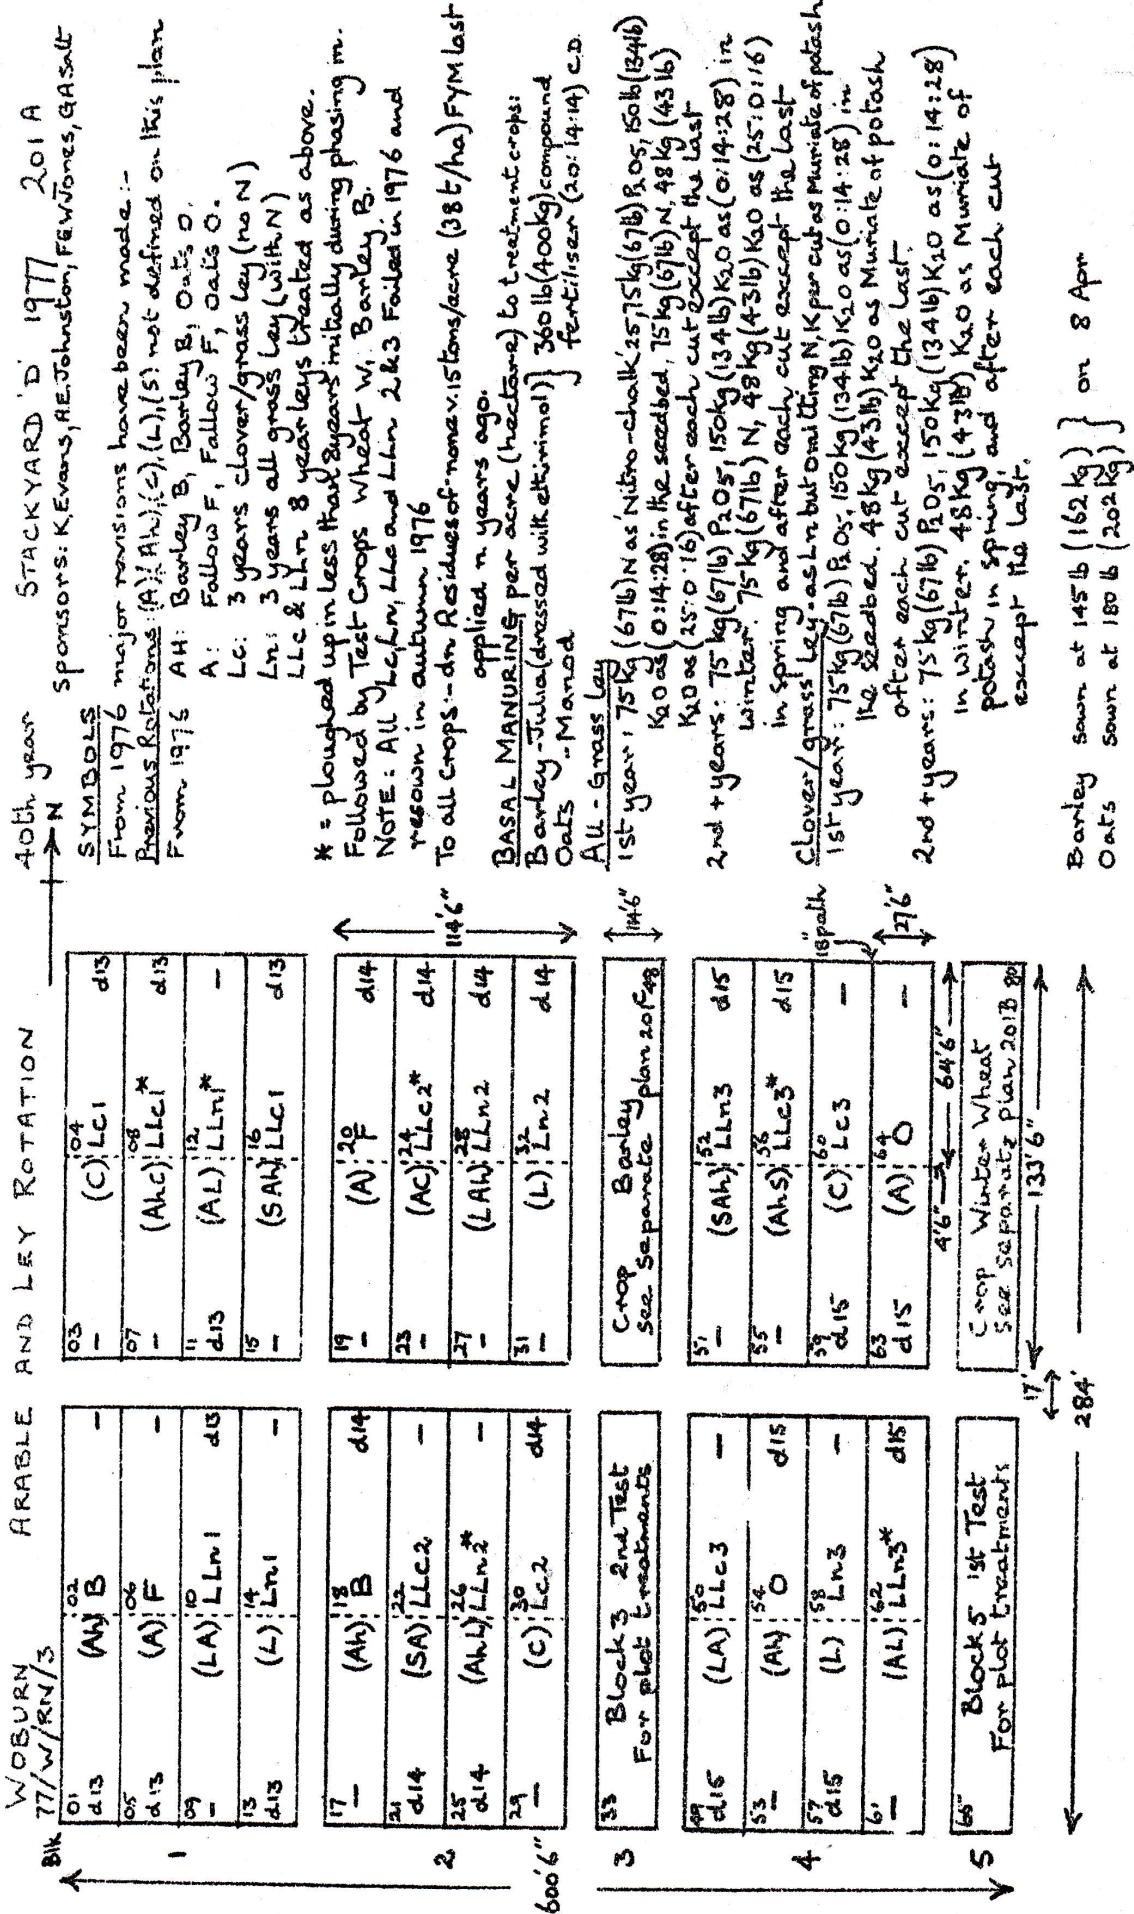 WOBURN ARABLE AND LEY ROTATION 40th year STACKYARD 'D' 1977 201 A
77/W/RN/3
→ N
Sponsors: K.Evans, A.E.Johnston, F.E.W.Jones, G.A.Salt
Blk
1
01 (Ah) 02 B
d13 –
03 (C) 04 Lc1
– d13
05 (A) 06 F
d13 –
07 (AhC) 08 LLc1*
– d13
09 (LA) 10 LLn1
– d13
11 (AL) 12 LLn1*
d13 –
13 (L) 14 Ln1
d13 –
15 (SAh) 16 LLc1
– d13
2
17 (Ah) 18 B
– d14
19 (A) 20 F
– d14
21 (SA) 22 LLc2
d14 –
23 (AC) 24 LLc2*
– d14
25 (AhL) 26 LLn2*
d14 –
27 (LAh) 28 LLn2
– d14
29 (C) 30 Lc2
– d14
31 (L) 32 Ln2
– d14
114'6"
3
33 Block 3 2nd Test
For plot treatments
Crop Barley
see separate plan 20F 48
114'6"
4
49 (LA) 50 LLc3
d15 –
51 (SAh) 52 LLn3
– d15
53 (Ah) 54 O
– d15
55 (AhS) 56 LLc3*
– d15
57 (L) 58 Ln3
d15 –
59 (C) 60 Lc3
d15 –
61 (AL) 62 LLn3*
– d15
63 (A) 64 O
d15 –
18" path
27'6"
4'6" 64'6"
5
65 Block 5 1st Test
For plot treatments
Crop Winter Wheat
See separate plan 201B 80
17' 133'6"
284'
600'6"
SYMBOLS
From 1976 major revisions have been made:-
Previous Rotations: (A),(Ah),(C),(L),(S) not defined on this plan
From 1976 AH: Barley B, Barley B, Oats O.
A: Fallow F, Fallow F, Oats O.
Lc: 3 years clover/grass ley (no N)
Ln: 3 years all grass ley (with N)
LLc & LLn 8 year leys treated as above.
* = ploughed up in less than 8 years initially during phasing in.
Followed by Test Crops Wheat W, Barley B.
NOTE: All Lc, Ln, LLc and LLn 2&3 Failed in 1976 and
resown in autumn 1976
To all crops:- dn Residues of none v. 15 tons/acre (38 t/ha) FYM last
applied n years ago.
BASAL MANURING per acre (hectare) to treatment crops:
Barley - Julia (dressed with ethirimol) } 360 lb (400kg) compound
Oats - Manod } fertiliser (20:14:14) C.D.
All - Grass Ley
1st year: 75kg (67lb) N as 'Nitro-chalk' 25, 75kg (67lb) P2O5, 150lb (134lb)
K2O as (0:14:28) in the seedbed, 75kg (67lb) N, 48 kg (43lb)
K2O as (25:0:16) after each cut except the last
2nd + years: 75 kg (67lb) P2O5, 150kg (134lb) K2O as (0:14:28) in
winter. 75kg (67lb) N, 48kg (43lb) K2O as (25:0:16)
in spring and after each cut except the last
Clover/grass Ley - as Ln but omitting N, K per cut as Muriate of potash
1st year: 75kg (67lb) P2O5, 150kg (134lb) K2O as (0:14:28) in
the seedbed. 48kg (43lb) K2O as Muriate of potash
after each cut except the last.
2nd + years: 75kg (67lb) P2O5, 150kg (134lb) K2O as (0:14:28)
in winter. 48kg (43lb) K2O as Muriate of
potash in spring, and after each cut
except the last.
Barley sown at 145 lb (162 kg) } on 8 Apr
Oats sown at 180 lb (202 kg) }